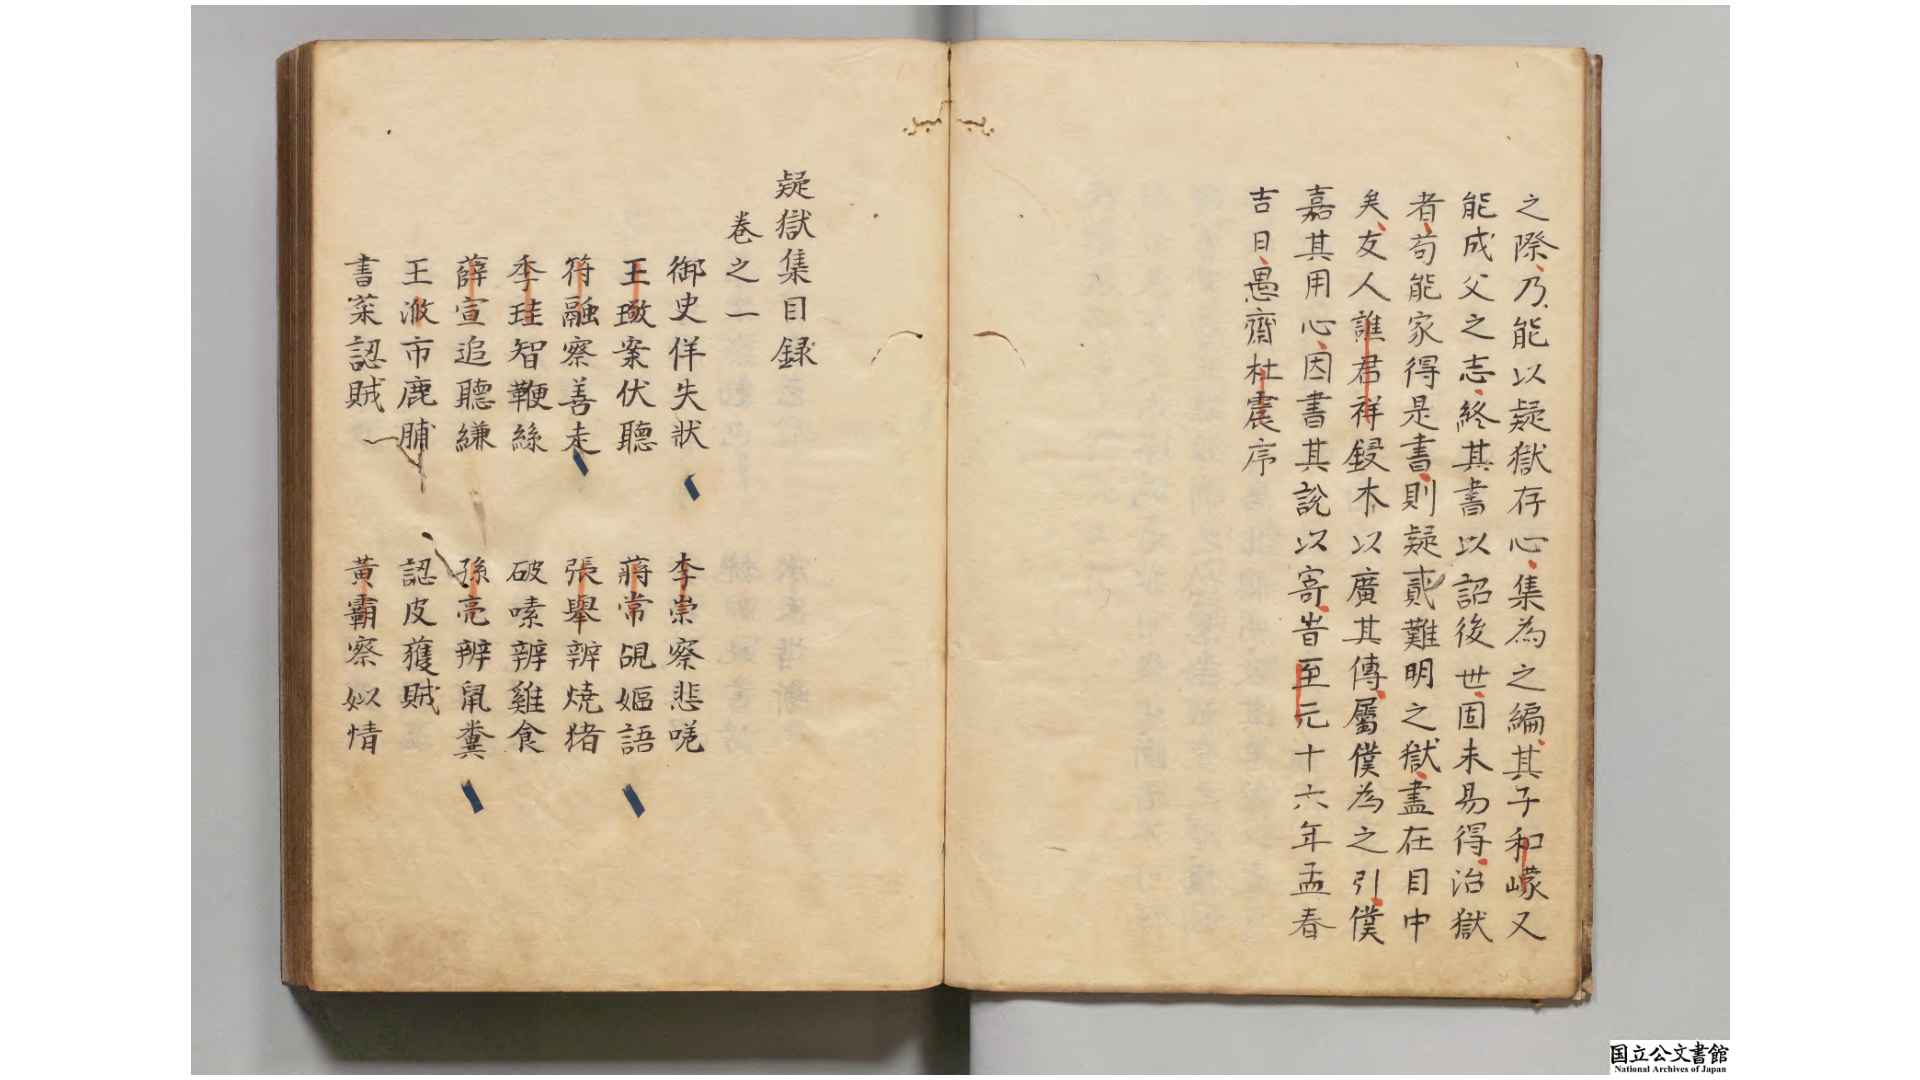 之際乃能以疑獄存心集為之編其子和㠓又
能成父之志終其書以詔後世固未易得治獄
者苟能家得是書則疑貳難明之獄盡在目中
矣友人譙君祥鋟木以廣其傳屬僕為之引僕
嘉其用心因書其說以寄旹至元十六年孟春
吉日愚齋杜震序
疑獄集目録
卷之一
御史佯失狀 李崇察悲嗟
王璥案伏聽 蔣常覘嫗語
符融察善走 張舉辨燒猪
季珪智鞭絲 破嗉辨雞食
薛宣追聽縑 孫亮辨鼠糞
王浟市鹿脯 認皮獲賊
書菜認賊 黃霸察姒情
国立公文書館
National Archives of Japan